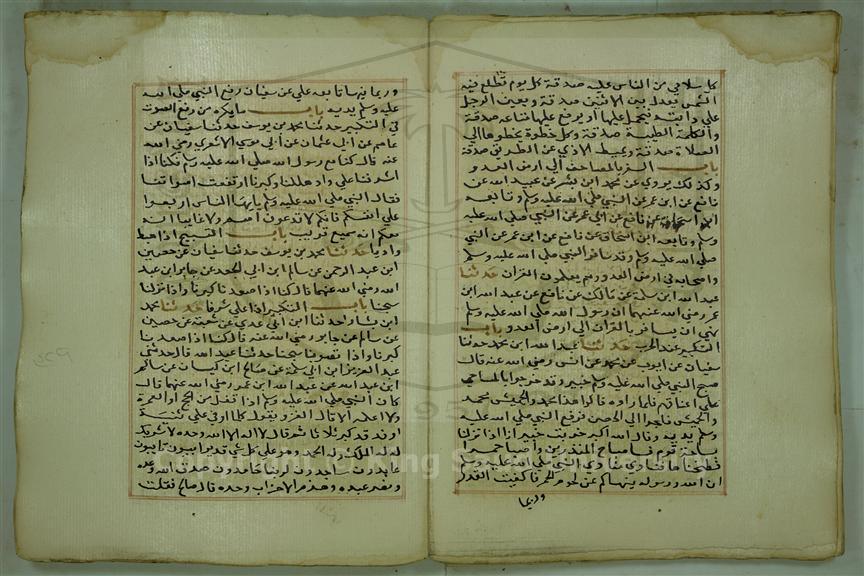 كل سلامي من الناس عليه صدقة كل يوم تطلع فيه
الشمس يعدل بين الاثنين صدقة ويعين الرجل
علي دابته فيحمل عليها او يرفع عليها متاعه صدقة
والكلمة الطيبة صدقة وكل خطوة يخطوها الي
الصلاة صدقة ويميط الاذي عن الطريق صدقة
باب السفر بالمصاحف الي ارض العدو
وكذلك يروي عن محمد ابن بشر عن عبيد الله عن
نافع عن ابن عمر عن النبي صلي الله عليه وسلم وتابعه
ابن اسحاق عن نافع عن ابن عمر عن النبي صلي الله عليه
وسلم وتابعه ابن اسحاق عن نافع عن ابن عمر عن النبي
صلي الله عليه وسلم وقد سافر النبي صلي الله عليه وسلم
واصحابه في ارض العدو وهم يعلمون القران حدثنا
عبد الله ابن مسلمة عن مالك عن نافع عن عبد الله ابن
عمر رضي الله عنهما ان رسول الله صلي الله عليه وسلم
نهي ان يسافر بالقران الي ارض العدو باب
التكبير عند الحرب حدثنا عبد الله ابن محمد حدثنا
سفيان عن ايوب عن محمد عن انس رضي الله عنه قال
صبح النبي صلي الله عليه وسلم خيبر وقد خرجوا بالمساحي
علي اعناقهم فلما راوه قالوا هذا محمد والخميس محمد
والخميس فلجوا الي الحصن فرفع النبي صلي الله عليه
وسلم يديه وقال الله اكبر خربت خيبر انا اذا نزلنا
بساحة قوم فساء صباح المنذرين واصبنا حمرا
فطبخناها فنادي منادي النبي صلي الله عليه وسلم
ان الله ورسوله ينهاكم عن لحوم الحمر فاكفيت القدور
وربما
وربما فيها تابعه علي عن سفيان رفع النبي صلي الله
عليه وسلم يديه باب مايكره من رفع الصوت
في التكبير حدثنا محمد بن يوسف حدثنا سفيان عن
عاصم عن ابي عثمان عن ابي موسي الاشعري رضي الله
عنه قال كنا مع رسول الله صلي الله عليه وسلم فكنا اذا
اشرفنا علي واد هللنا وكبرنا ارتفعت اصواتنا
فقال النبي صلي الله عليه وسلم يايها الناس اربعوا
علي انفسكم فانكم لا تدعون اصم ولا غايبا انه
معكم انه سميع قريب باب التسبيح اذا هبط
واديا حدثنا محمد بن يوسف حدثنا سفيان عن حصين
ابن عبد الرحمن عن سالم ابن ابي الجعد عن جابر ابن عبد
الله رضي الله عنهما قال كنا اذا صعدنا كبرنا واذا نزلنا
سبحنا باب التكبير اذا علي شرفا حدثنا محمد
ابن بشار حدثنا ابن ابي عدي عن شعبة عن حصين
عن سالم عن جابر رضي الله عنه قال كنا اذا صعدنا
كبرنا واذا تصوبنا سبحنا حدثنا عبد الله قال حدثني
عبد العزيز ابن ابي سلمة عن صالح ابن كيسان عن سالم
ابن عبد الله عن عبد الله ابن عمر رضي الله عنهما قال
كان النبي صلي الله عليه وسلم اذا قفل من الحج او العمرة
ولا اعلمه الا قال الغزو يقول كلما اوفي علي ثنية
او فدفد كبر ثلاثا ثم قال لا اله الا الله وحده لا شريك
له له الملك وله الحمد وهو علي كل شي قدير ايبون تايبون
عابدون ساجدون لربنا حامدون صدق الله وعده
ونصر عبده وهزم الاحزاب وحده قال صالح فقلت